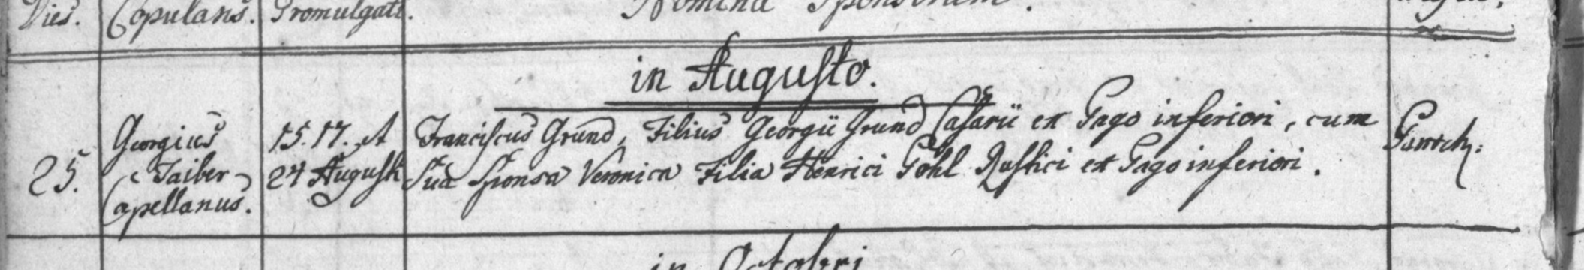 Dies. Copulans. Promulgati. Nomina Sponsorum.
in Augusto.
25. Georgius Taiber Capellanus. 15. 17. et 24 Augusti
Franciscus Grund, Filius Georgii Grund Casarii ex Pago inferiori, cum
Sua Sponsa Veronica Filia Henrici Göhl Rustici ex Pago inferiori.
in Octobri